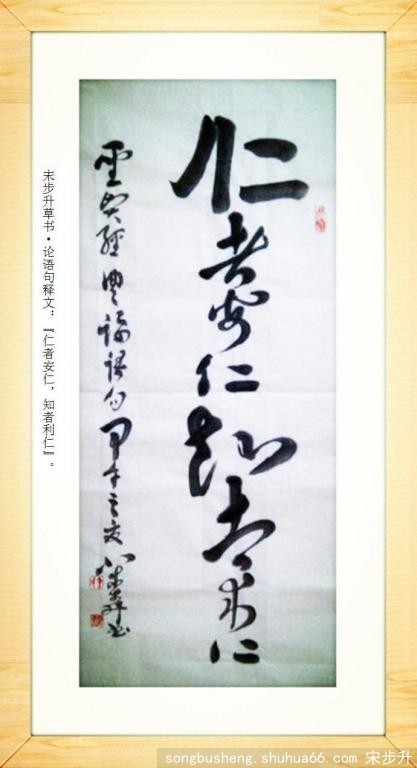 仁者安仁知者利仁
聖贤經典論語句甲午之夏
宋步升草书·论语句释文：『仁者安仁，知者利仁』。
songbusheng.shuhua66.com 宋步升